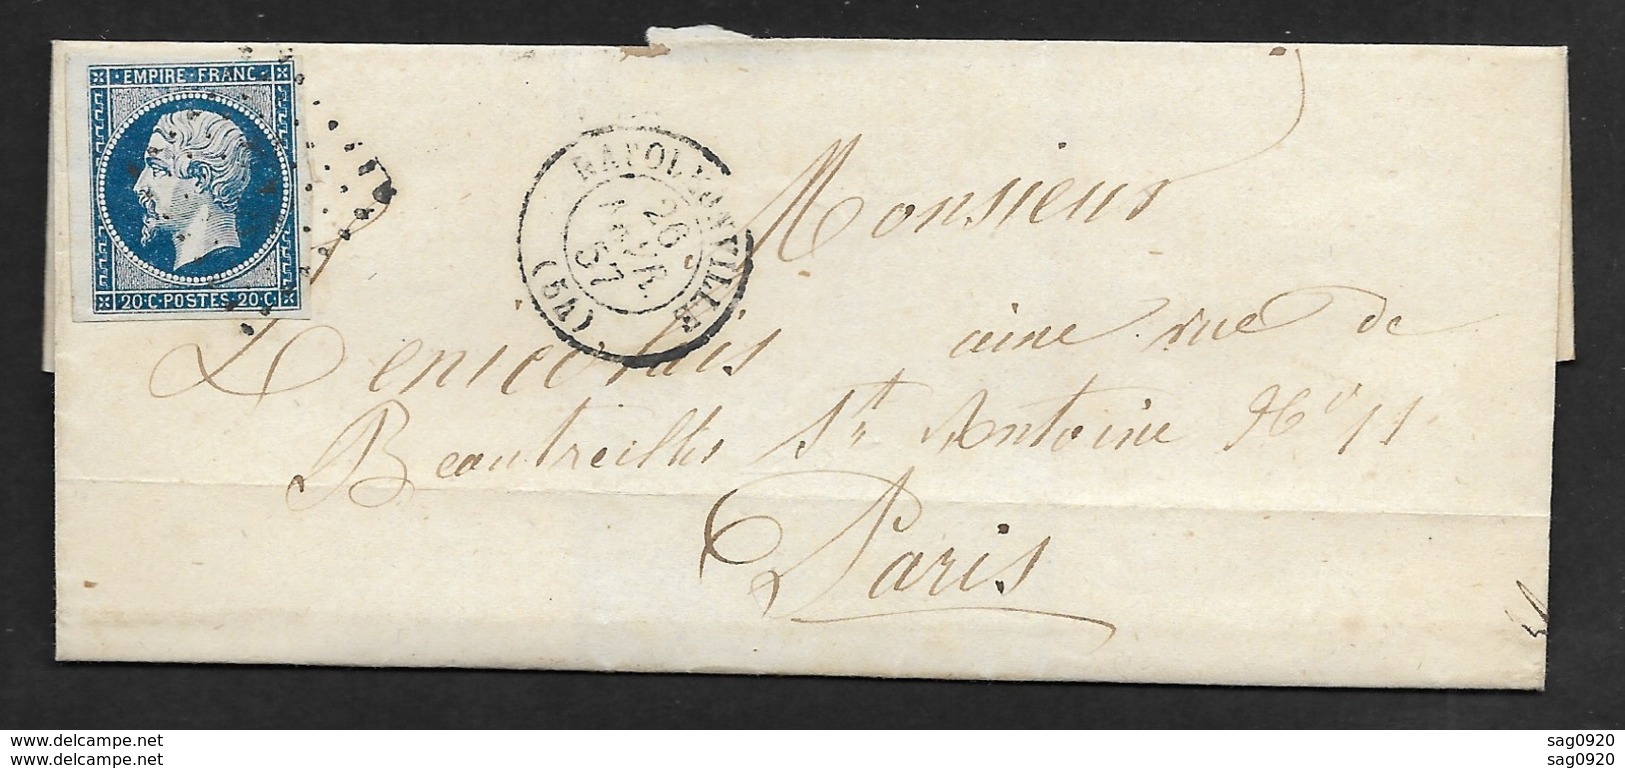 EMPIRE FRANC
20·C·POSTES·20·C
NAPOLEONVILLE
26
AVR.
57
(54)
Monsieur
Denicolais aine rue de
Beautreillis St Antoine No 11
Paris
www.delcampe.net
sag0920
www.delcampe.net
sag0920